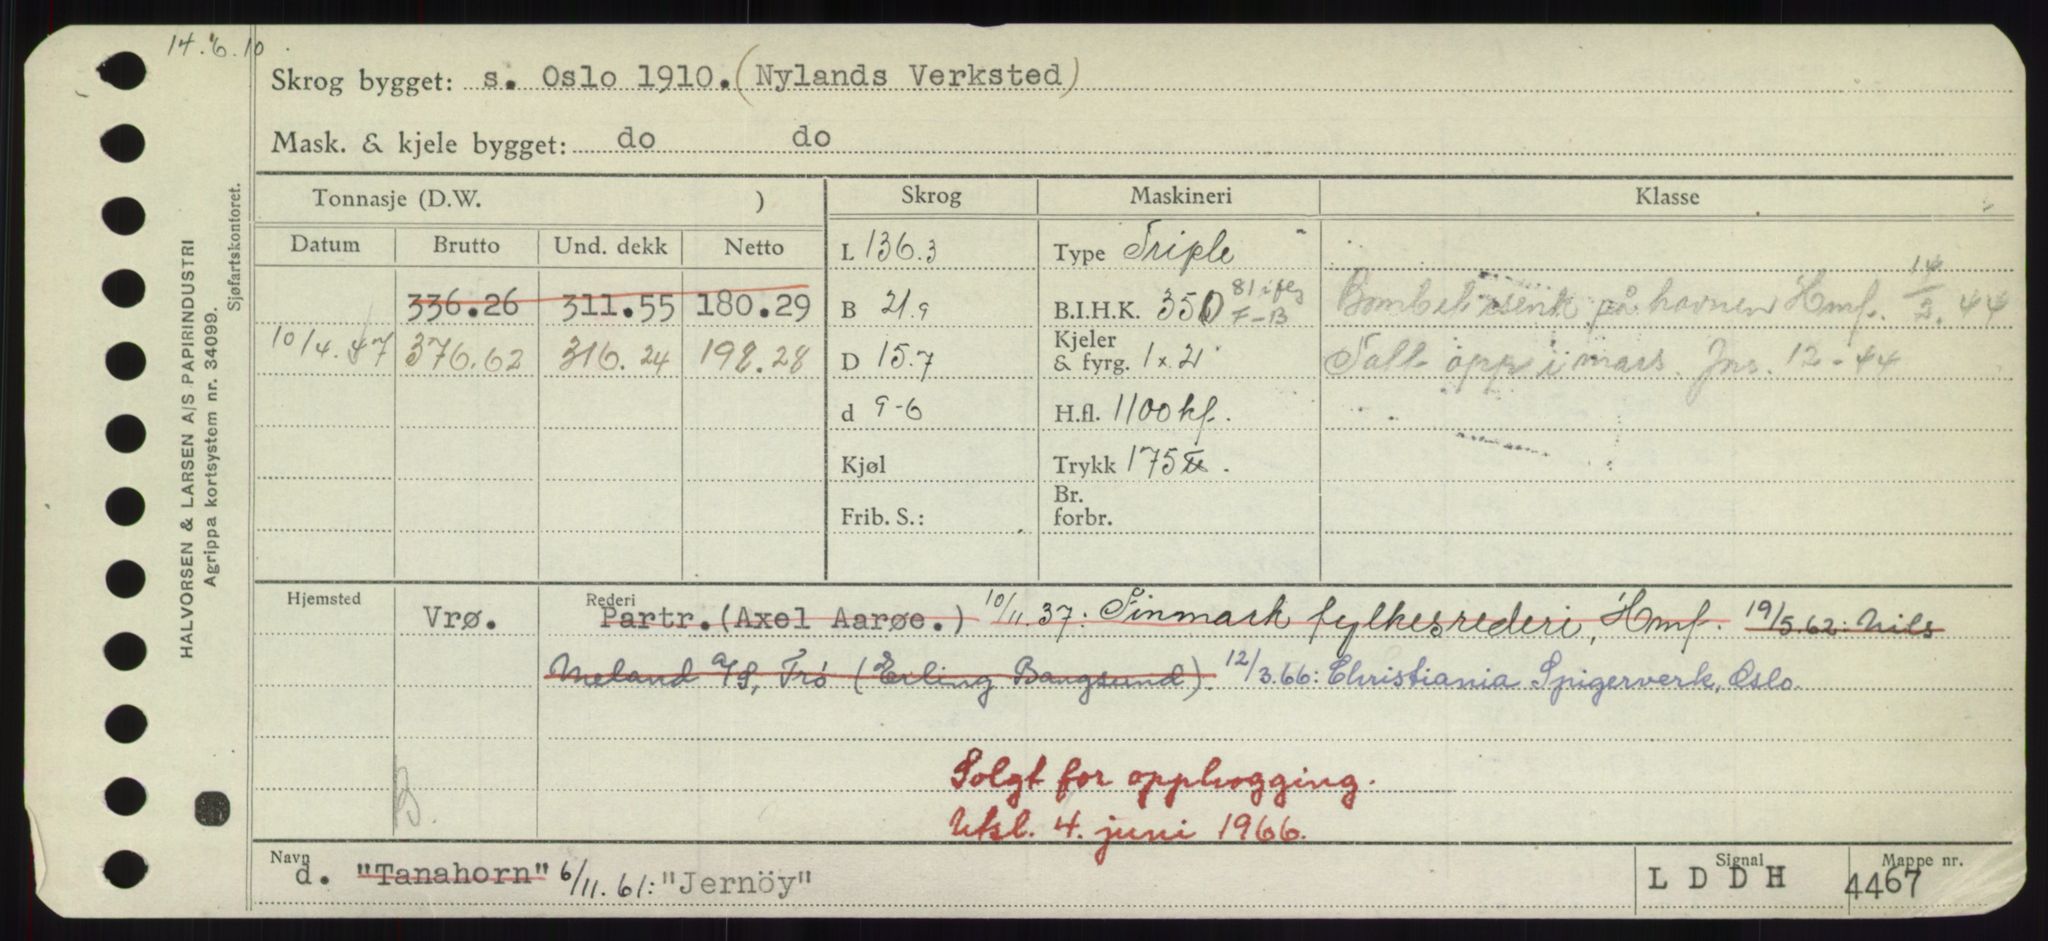 14.6.10
Skrog bygget: s. Oslo 1910. (Nylands Verksted)
Mask. & kjele bygget: do do
HALVORSEN & LARSEN A/S PAPIRINDUSTRI
Agrippa kortsystem nr. 34099.
Sjøfartskontoret.
Tonnasje (D.W. ) Skrog Maskineri Klasse
Datum Brutto Und. dekk Netto L 136.3 Type Triple
336.26 311.55 180.29 B 21.9 B.I.H.K. 350 81 i flg F-B Bombet senk på havnen Hmf. 14/2.44
10/4.47 376.62 316.24 198.28 D 15.7 Kjeler & fyrg. 1x2 Tatt opp i mars. Jnr. 12-44
d 9-6 H.fl. 1100 kf.
Kjøl Trykk 175 ℔.
Frib. S.: Br. forbr.
Hjemsted Vrø. Rederi Partr. (Axel Aarøe.) 10/11.37: Finmark fylkesrederi, Hmf. 19/5.62: Nils
Meland A/S, Trø (Erling Bangsund). 12/3.66: Christiania Spigerverk, Oslo.
B.
Solgt for opphogging.
Utsl. 4. juni 1966.
Navn d. "Tanahorn" 6/11.61: "Jernöy" Signal LDDH Mappe nr. 4467